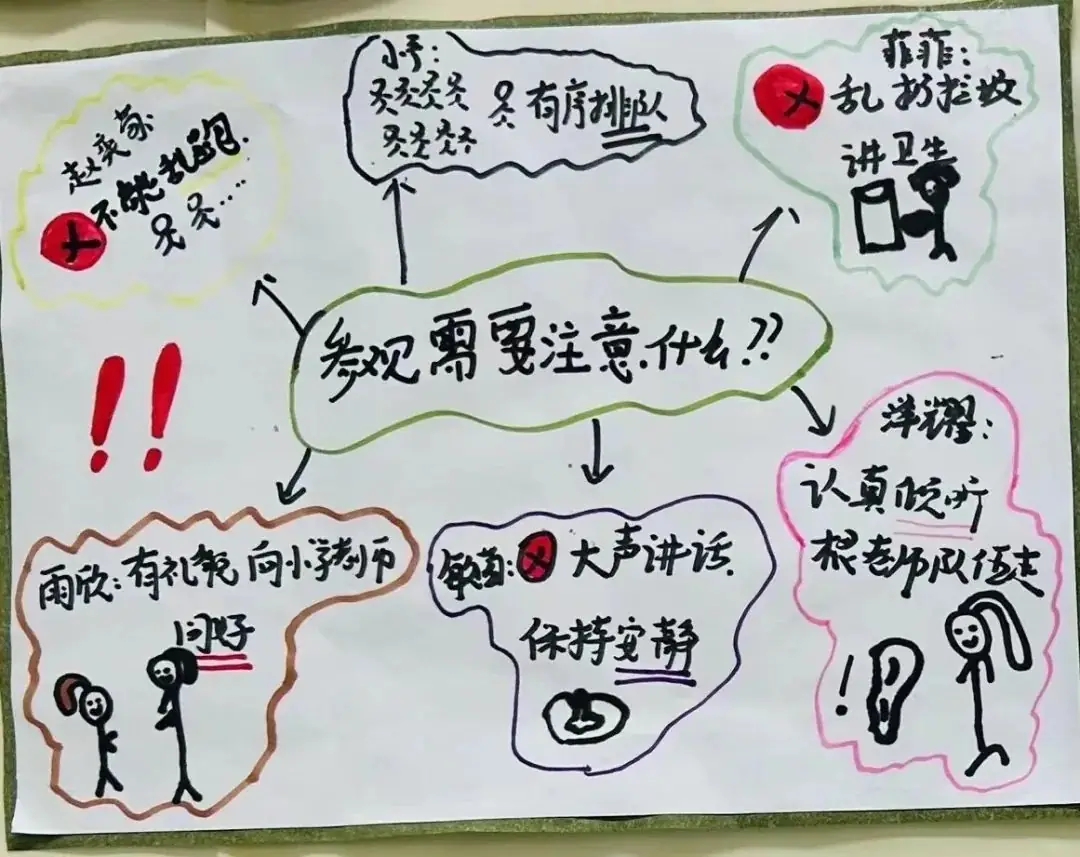 小予:
有序排队
菲菲:
乱扔垃圾
讲卫生
赵奕
不能乱跑.
...
参观需要注意什么??
!!
洋耀:
认真倾听
跟老师队伍走
!
雨欣:有礼貌 向小学老师
问好
大声讲话
保持安静